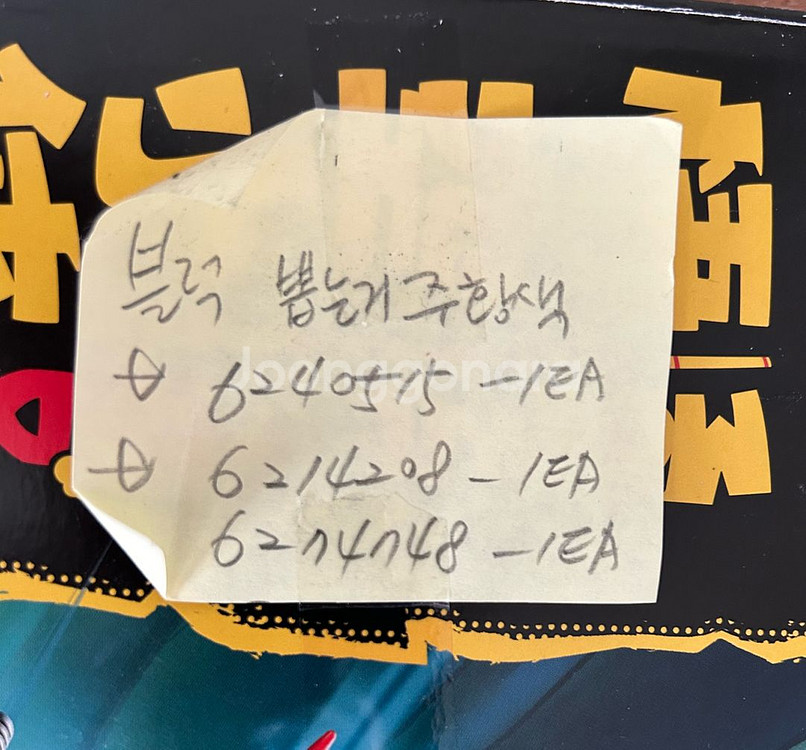 블럭 뽑는거 주황색
→ 6240515 -1EA
→ 6214208 - 1EA
6274748 -1EA